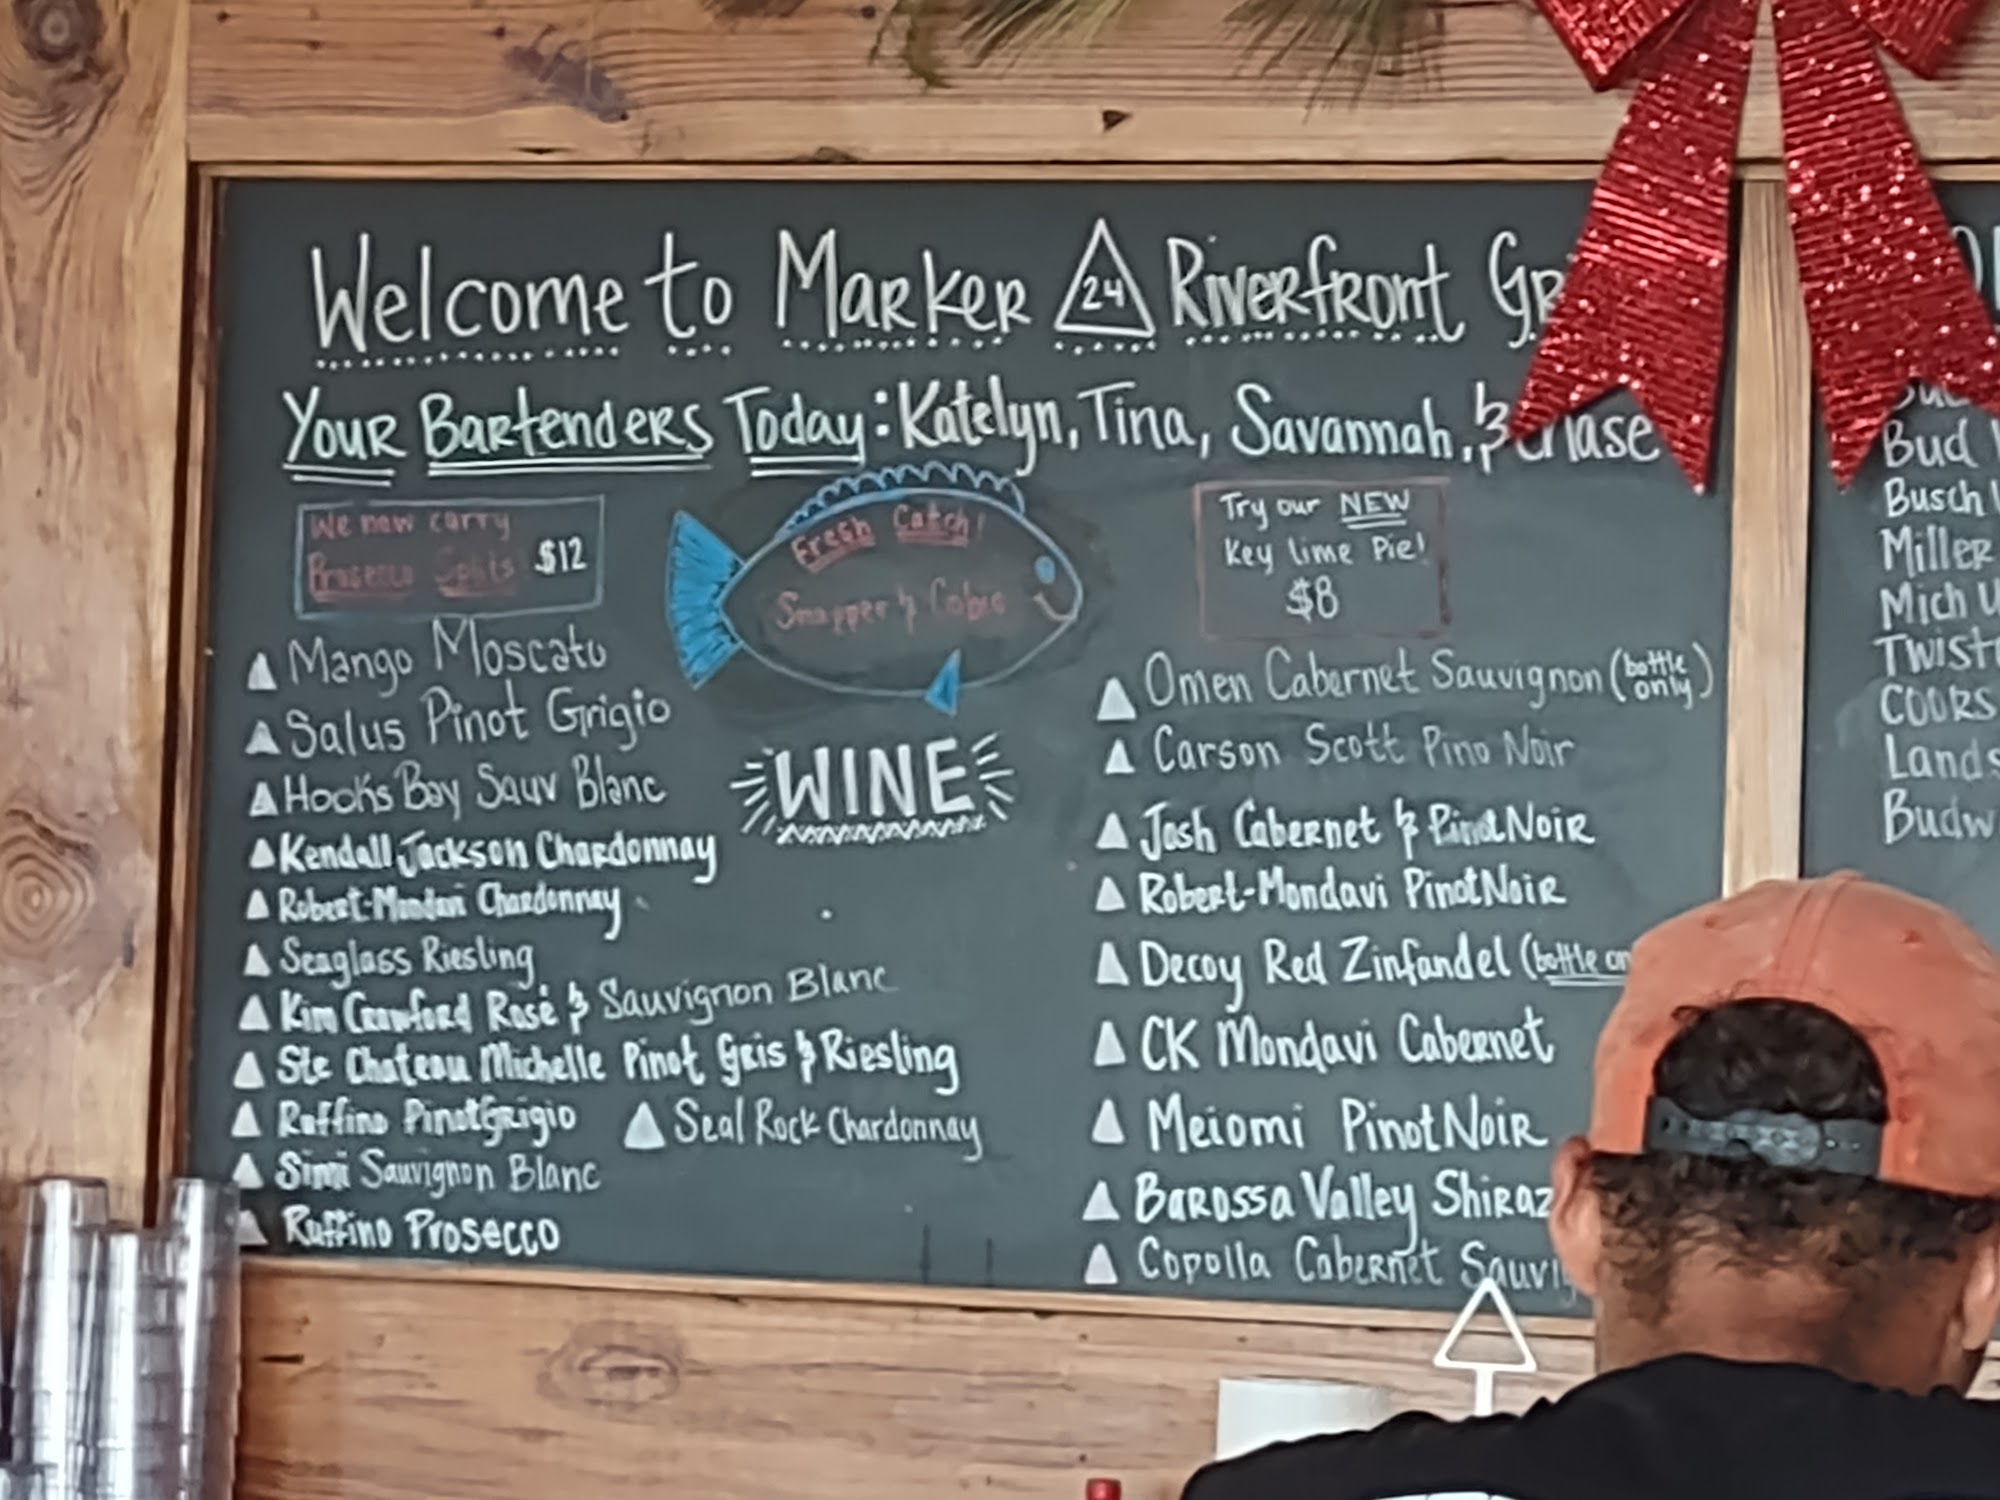 Welcome to Marker 24 Riverfront
Your Bartenders Today: Katelyn, Tina, Savannah, &
We now carry
Prosecco Splits $12
Fresh Catch!
Snapper & Cobia
Try our NEW
Key lime Pie!
$8
WINE
Mango Moscato
Salus Pinot Grigio
Hooks Bay Sauv Blanc
Kendall Jackson Chardonnay
Robert-Mondavi Chardonnay
Seaglass Riesling
Kim Crawford Rosé & Sauvignon Blanc
Ste Chateau Michelle Pinot Gris & Riesling
Ruffino Pinot Grigio
Seal Rock Chardonnay
Simi Sauvignon Blanc
Ruffino Prosecco
Omen Cabernet Sauvignon (bottle only)
Carson Scott Pino Noir
Josh Cabernet & Pinot Noir
Robert-Mondavi Pinot Noir
Decoy Red Zinfandel (bottle
CK Mondavi Cabernet
Meiomi Pinot Noir
Barossa Valley Shiraz
Copolla Cabernet
Bud
Busch
Miller
Mich
COORS